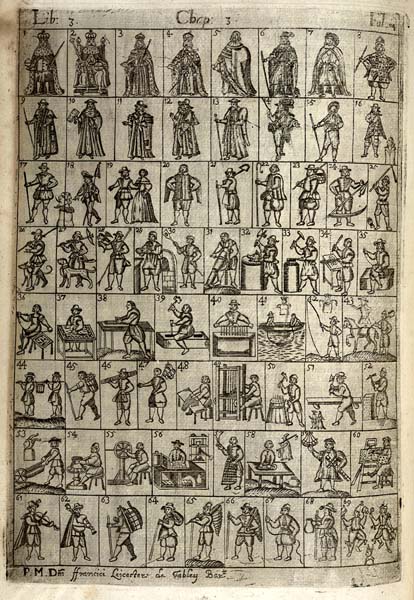 Lib: 3. Chap: 3
1 2 3 4 5 6 7 8
9 10 11 12 13 14 15 16
17 18 19 20 21 22 23 24 25
26 27 28 29 30 31 32 33 34 35
36 37 38 39 40 41 42 43
44 45 46 47 48 49 50 51 52
53 54 55 56 57 58 59 60
61 62 63 64 65 66 67 68 69
P. M. Dni ffrancici Leicester de Tabley Bar: